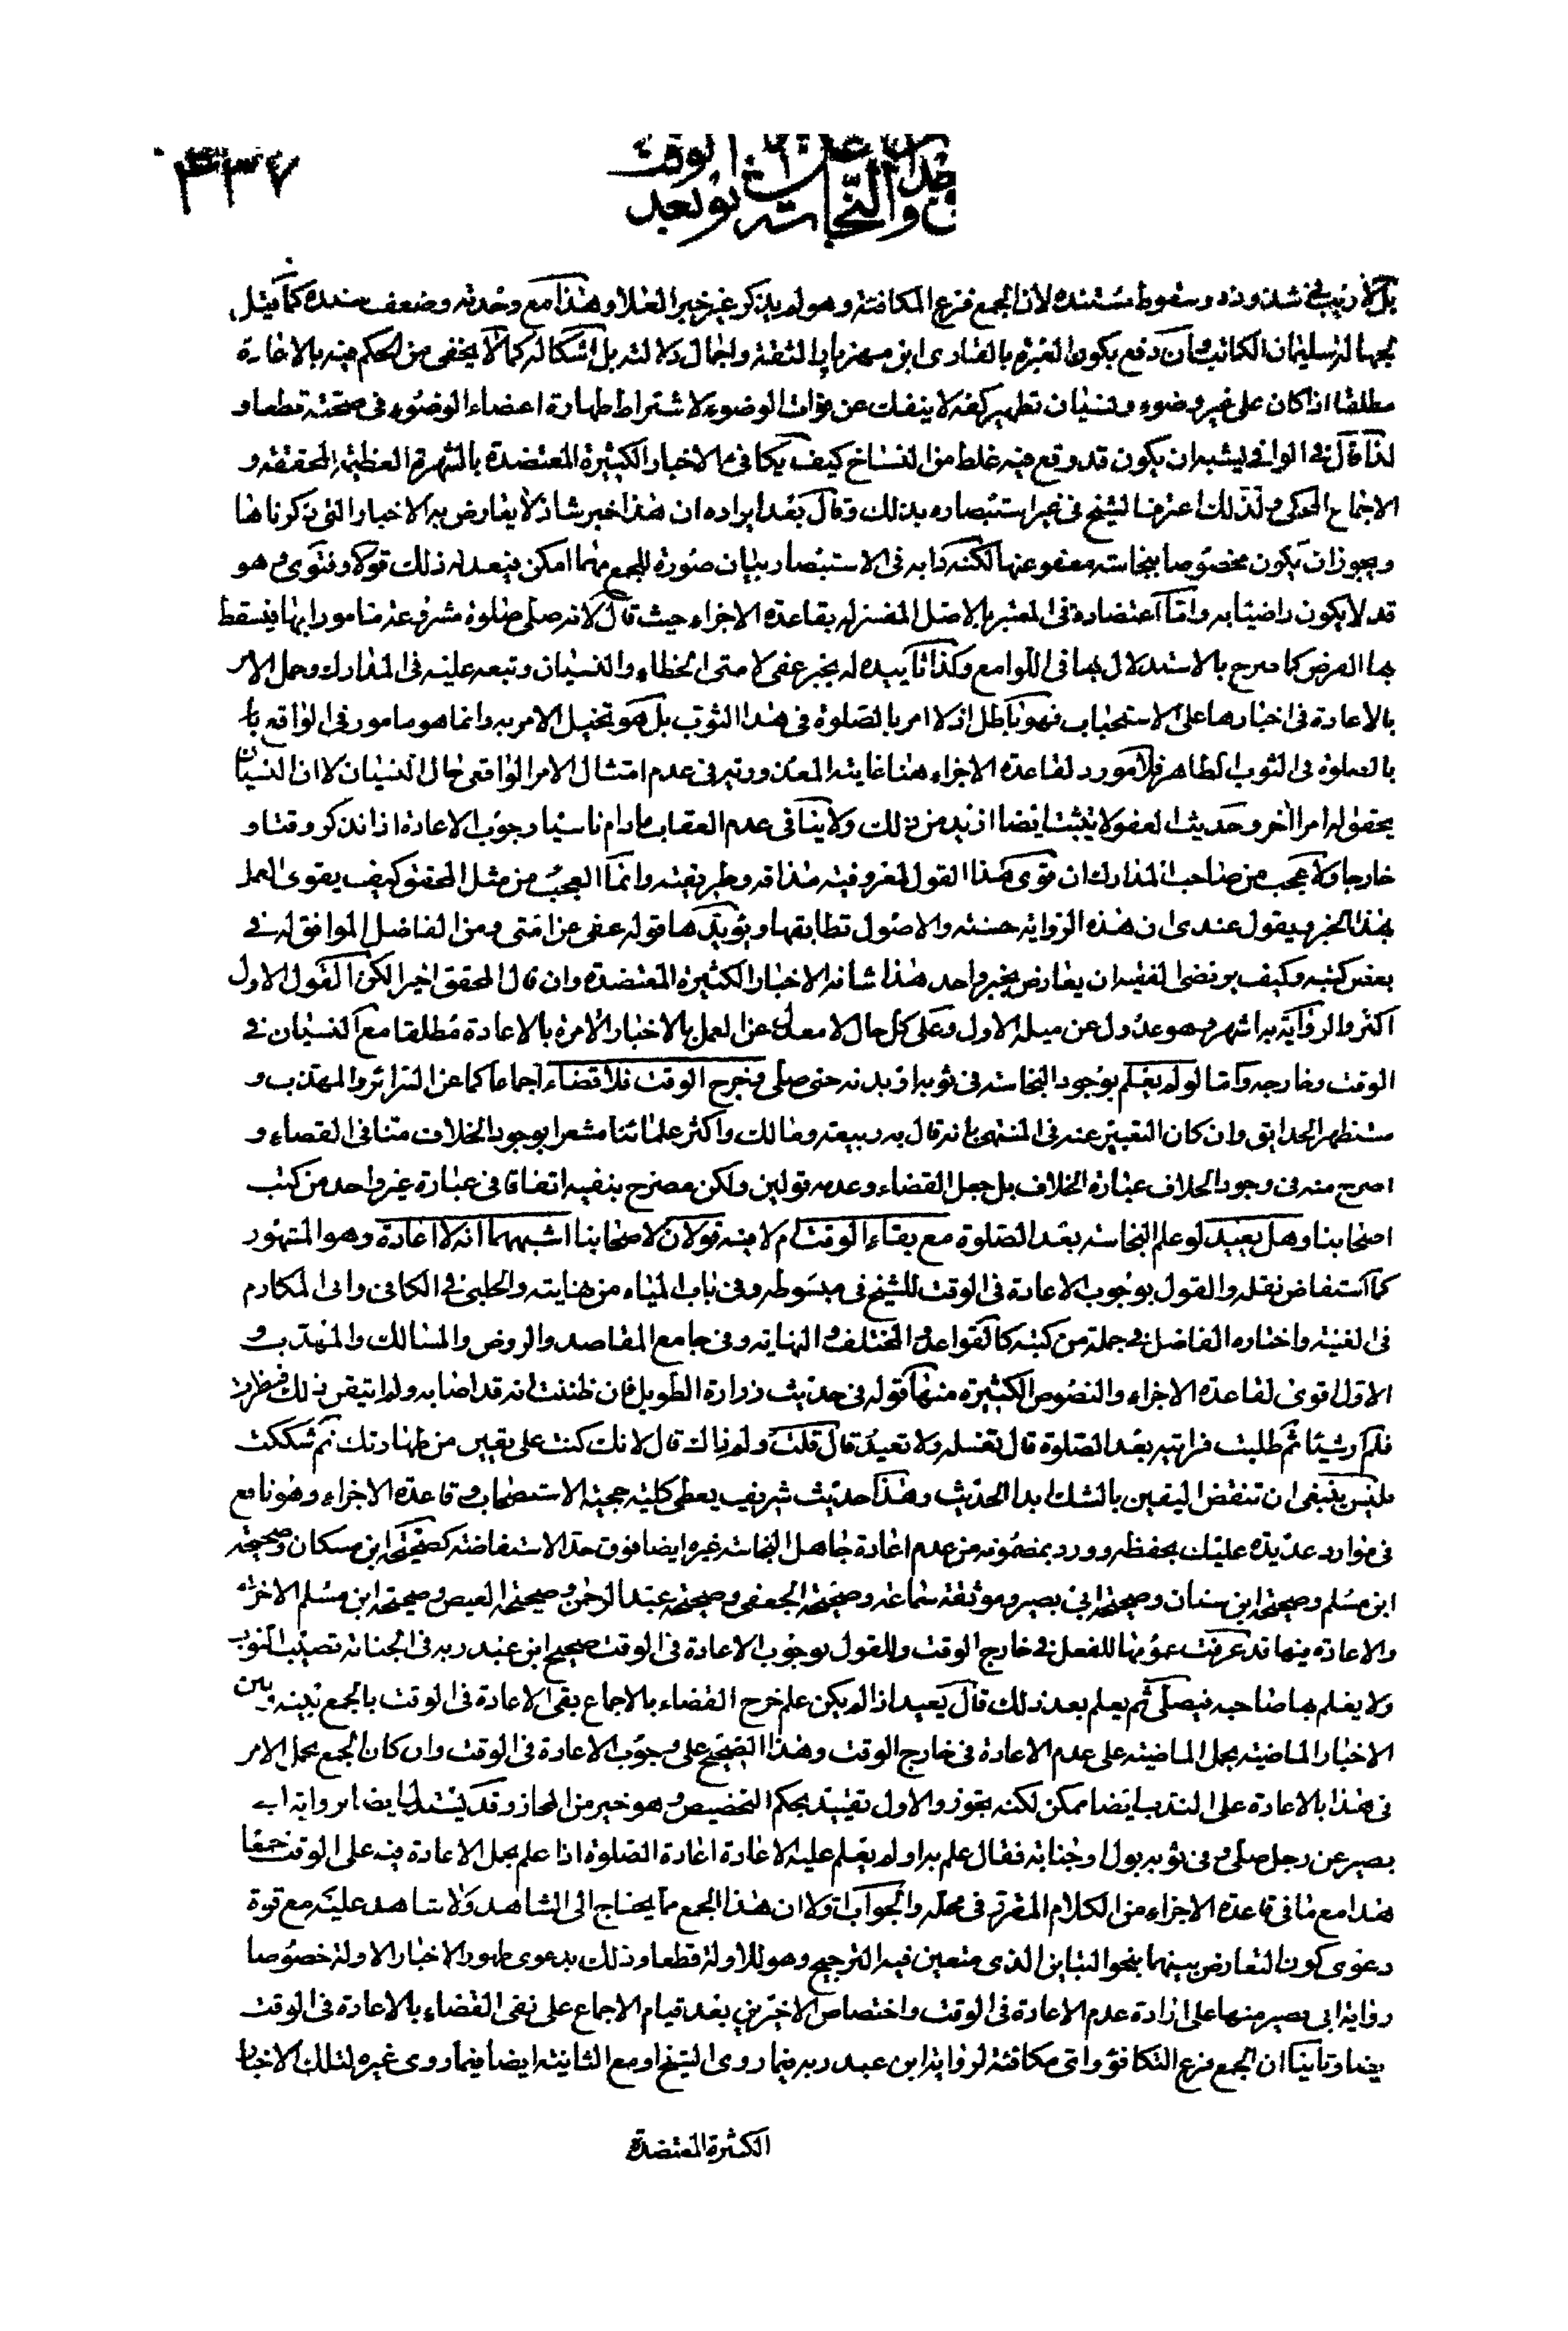 ٣٣٧
بل لا ريب في شذوذه وسقوط مستنده لأن الجمع فرع المكافئة وهو لم يذكر غير خبر العلا وهذا مع وحدته وضعف سنده كما قيل
بجهالة سليمان الكاتب وان دفع بكون العبرة بالفتاوى ابن مهزيار الثقة واجمال دلالته بل اشكاله كما لا يخفى من الحكم فيه بالاعادة
مطلقا اذا كان على غير وضوء ونسيان تطهير كفه لا ينفك عن فوات الوضوء لاشتراط طهارة اعضاء الوضوء في صحته قطعا و
لذا قال في الوافي يشبه ان يكون قد وقع فيه غلط من النساخ كيف يكافئ الاخبار الكثيرة المعتضدة بالشهرة العظيمة المحققة و
الاجماع المحكي ولذلك اعترف الشيخ في غير استبصاره بذلك وقال بعد ايراده ان هذا خبر شاذ لا يعارض به الاخبار التي ذكرناها
ويجوز ان يكون مخصوصا بنجاسة معفو عنها لكنه دابه في الاستبصار بيان صورة للجمع مهما امكن فيعد له ذلك قولا وفتوى وهو
قد لا يكون راضيا به واما اعتضاده في المعتبر بالاصل المفسر له بقاعدة الاجزاء حيث قال لانه صلى صلوة مشروعة مامورا بها فيسقط
بها الفرض كما صرح بالاستدلال بها في اللوامع وكذا تاييده له بخبر عفي لامتي الخطاء والنسيان وتبعه عليه في المدارك وحمل الامر
بالاعادة في اخبارها على الاستحباب فهو باطل اذ لا امر بالصلوة في هذا الثوب بل هو تخيل الامر به وانما هو مامور في الواقع
بالصلوة في الثوب الطاهر فلا مورد لقاعدة الاجزاء هنا غايته المعذورية في عدم امتثال الامر الواقعي حال النسيان لا ان النسيان
يحقق له امرا آخر وحديث العفو لا يثبت ايضا ازيد من ذلك ولا ينافي عدم العقاب مادام ناسيا وجوب الاعادة اذا تذكر وقتا و
خارجا ولا عجب من صاحب المدارك ان قوى هذا القول لمعروفية مذاقه وطريقته وانما العجب من مثل المحقق كيف يقوى العمل
بهذا الخبر ويقول عندي ان هذه الرواية حسنة والاصول تطابقها ويؤيدها قوله عفي عن امتي ومن الفاضل الموافق له في
بعض كتبه وكيف يرضى الفقيه ان يعارض بخبر واحد هذا شانه الاخبار الكثيرة المعتضدة وان قال المحقق اخيرا لكن القول الاول
اكثر والرواية به اشهر وهو عدول عن ميله الاول وعلى كل حال لا معدل عن العمل بالاخبار الآمرة بالاعادة مطلقا مع النسيان في
الوقت وخارجه واما لو لم يعلم بوجود النجاسة في ثوبه او بدنه حتى صلى وخرج الوقت فلا قضاء اجماعا كما عن السرائر والمهذب و
مستظهر الحدايق وان كان التعبير عنه في المنتهى بانه قال به ربيعة ومالك واكثر علمائنا مشعرا بوجود الخلاف منا في القضاء و
اصرح منه في وجود الخلاف عبارة الخلاف بل جعل القضاء وعدمه قولين ولكن مصرح بنفيه اتفاقا في عبارة غير واحد من كتب
اصحابنا وهل يعيد لو علم النجاسة بعد الصلوة مع بقاء الوقت ام لا فيه قولان لاصحابنا اشبههما انه لا اعادة وهو المشهور
كما استفاض نقله والقول بوجوب الاعادة في الوقت للشيخ في مبسوطه وفي باب المياه من نهايته والحلبي في الكافي وابي المكارم
في الغنية واختاره الفاضل في جملة من كتبه كالقواعد والمختلف والنهاية وفي جامع المقاصد والروض والمسالك والمهذب و
الاول اقوى لقاعدة الاجزاء والنصوص الكثيرة منها قوله في حديث زرارة الطويل فان ظننت انه قد اصابه ولم اتيقن ذلك فنظرت
فلم ار شيئا ثم طلبت فرايته بعد الصلوة قال تغسله ولا تعيد قال قلت ولم ذاك قال لانك كنت على يقين من طهارتك ثم شككت
فليس ينبغي ان تنقض اليقين بالشك ابدا الحديث وهذا حديث شريف يعطي كلية حجية الاستصحاب وقاعدة الاجزاء وهو نافع
في موارد عديدة عليك بحفظه وورد بمضمونه من عدم اعادة جاهل النجاسة غيره ايضا فوق حد الاستفاضة كصحيحة ابن مسكان وصحيحة
ابن مسلم وصحيحة ابن سنان وصحيحة ابي بصير وموثقة سماعة وصحيحة الجعفي وصحيحة عبد الرحمن وصحيحة العيص وصحيحة ابن مسلم الاخرى
والاعادة فيها قد عرفت عمومها للفعل في خارج الوقت وللقول بوجوب الاعادة في الوقت صحيح ابن عبد ربه في الجنابة تصيب الثوب
ولا يعلم بها صاحبه فيصلي ثم يعلم بعد ذلك قال يعيد اذا لم يكن علم خرج القضاء بالاجماع بقي الاعادة في الوقت بالجمع بينه وبين
الاخبار الماضية بحمل الماضية على عدم الاعادة في خارج الوقت وهذا الصحيح على وجوب الاعادة في الوقت وان كان الجمع بحمل الامر
في هذا بالاعادة على الندب ايضا ممكن لكنه تجوز والاول تقييد بحكم التخصيص وهو خير من المجاز وقد يستدل ايضا برواية ابي
بصير عن رجل صلى وفي ثوبه بول او جنابة فقال علم به او لم يعلم عليه الاعادة اعادة الصلوة اذا علم بحمل الاعادة فيه على الوقت جمعا
هذا مع ما في قاعدة الاجزاء من الكلام المقرر في محله والجواب اولا ان هذا الجمع مما يحتاج الى الشاهد ولا شاهد عليه مع قوة
دعوى كون التعارض بينهما بنحو التباين الذي متعين فيه الترجيح وهو للاولة قطعا وذلك بدعوى ظهور الاخبار الاولة خصوصا
رواية ابي بصير منها على ارادة عدم الاعادة في الوقت واختصاص الاخيرين بعد قيام الاجماع على نفي القضاء بالاعادة في الوقت
ايضا وثانيا ان الجمع فرع التكافؤ واتى مكافئة لرواية ابن عبد ربه فيما روى الشيخ او مع الثانية ايضا فيما روى غيره لتلك الاخبار
الكثيرة المعتضدة